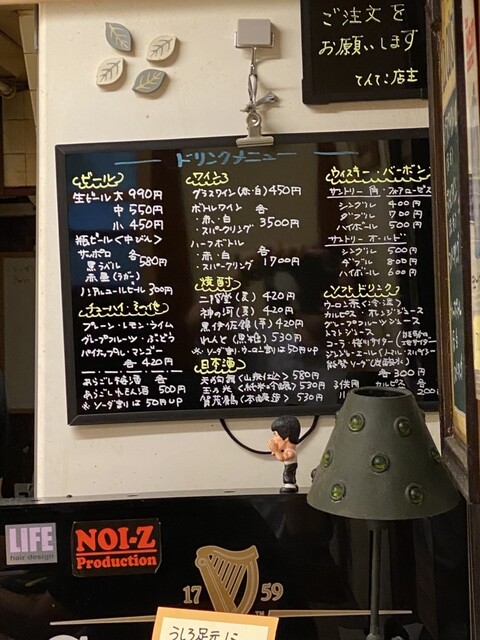 ご注文を
お願いします
てんてこ店主
ドリンクメニュー
ビール
生ビール 大 990円
中 550円
小 450円
瓶ビール〈中びん〉
サッポロ 各
黒ラベル 580円
赤星(ラガー)
ノンアルコールビール 300円
プレーン・レモン・ライム
グレープフルーツ・ぶどう
パイナップル・マンゴー
各 420円
あらごし梅酒 各
あらごしれんとん酒 500円
※ソーダ割りは50円UP
ワイン
グラスワイン(赤・白)450円
ボトルワイン 各
・赤・白 3500円
・スパークリング
ハーフボトル
・赤・白 各
・スパークリング 1700円
焼酎
二階堂(麦) 420円
神の河(麦) 420円
黒伊佐錦(芋) 420円
れんと(黒糖) 530円
※ソーダ割り、ウーロン割りは50円UP
日本酒
天狗舞〈山廃仕込〉580円
玉乃光〈純米吟醸〉530円
賀茂鶴〈本醸造〉530円
ウイスキー・バーボン
サントリー 角・フォアローゼス
シングル 400円
ダブル 700円
ハイボール 500円
サントリー オールド
シングル 500円
ダブル 800円
ハイボール 600円
ソフトドリンク
ウーロン茶(冷・温)
カルピス・オレンジジュース
グレープフルーツジュース
トマトジュース
コーラ・
ジンジャエール
各 300円
子供用 カルピス 各
200
LIFE
hair design
NOI-Z
Production
17 59
うしろ足元に